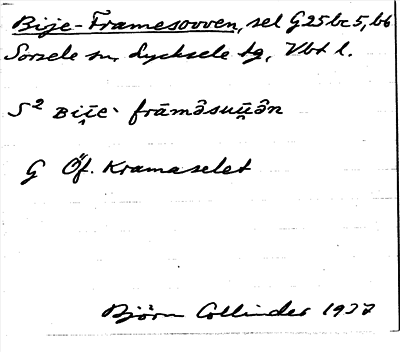 Bije-Framesovven, sel G25bc5,b6
Sorsele sn, Lycksele tg, Vbt l.
S² Bi̯i̯e` frāmâsuu̯ân
G Öf. Kramaselet
Björn Collinder 1937